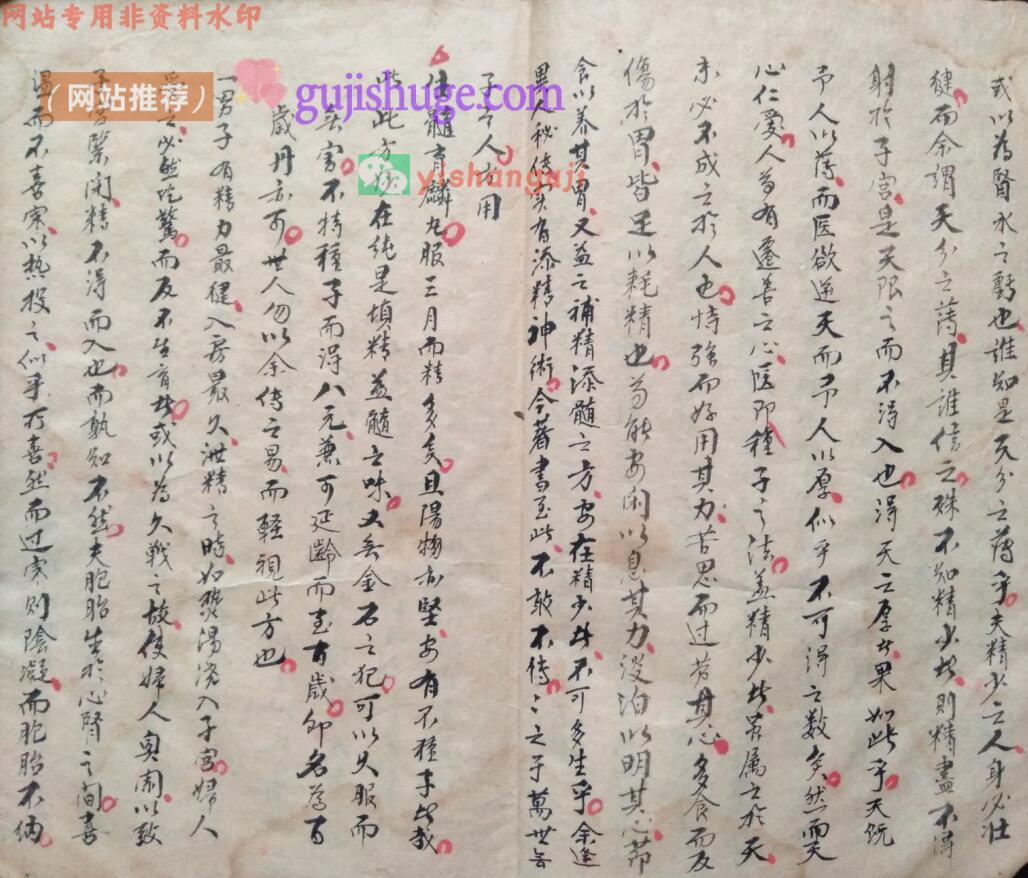 网站专用非资料水印
(网站推荐)
gujishuge.com
yishanguji
或以為腎水之虧也誰知是天分之薄乎夫精少之人身必壯
健而余謂天分之薄其誰信之殊不知精少者則精盡不得
射於子宮是天限之而不得入也得天之厚者果如此乎天既
予人以薄而医欲逆天而予人以厚似乎不可得之数矣然而天
心仁愛人苟有遷善之心医即種子之法蓋精少者雖属之於天
未必不成之於人也恃強而好用其力苦思而过劳其心多食而反
傷於胃皆足以耗精也苟能安閑以息其力淡泊以明其心節
食以养其胃又益之補精添髓之方安在精少者不可多生乎余逢
異人秘传实有添精神術今著書至此不敢不傳之子萬世
子之人方用
生髓育麟丸服三月而精多矣且陽物亦堅安有不種子者哉
此方妙在純是填精益髓之味又無金石之犯可以久服而
無害不特種子而得八元兼可延齡而至百歲即名為百
歲丹亦可世人勿以余传之易而軽視此方也
一男子有精力最健入房最久泄精之時如熱湯澆入子宮婦人
受之必然吃驚而反不生育者或以為久戰之故使婦人興闹以致
子宮緊闭精不得而入也而孰知不然夫胞胎生於心腎之间喜
温而不喜寒以熱投之似乎可喜然而过寒則陰凝而胞胎不納